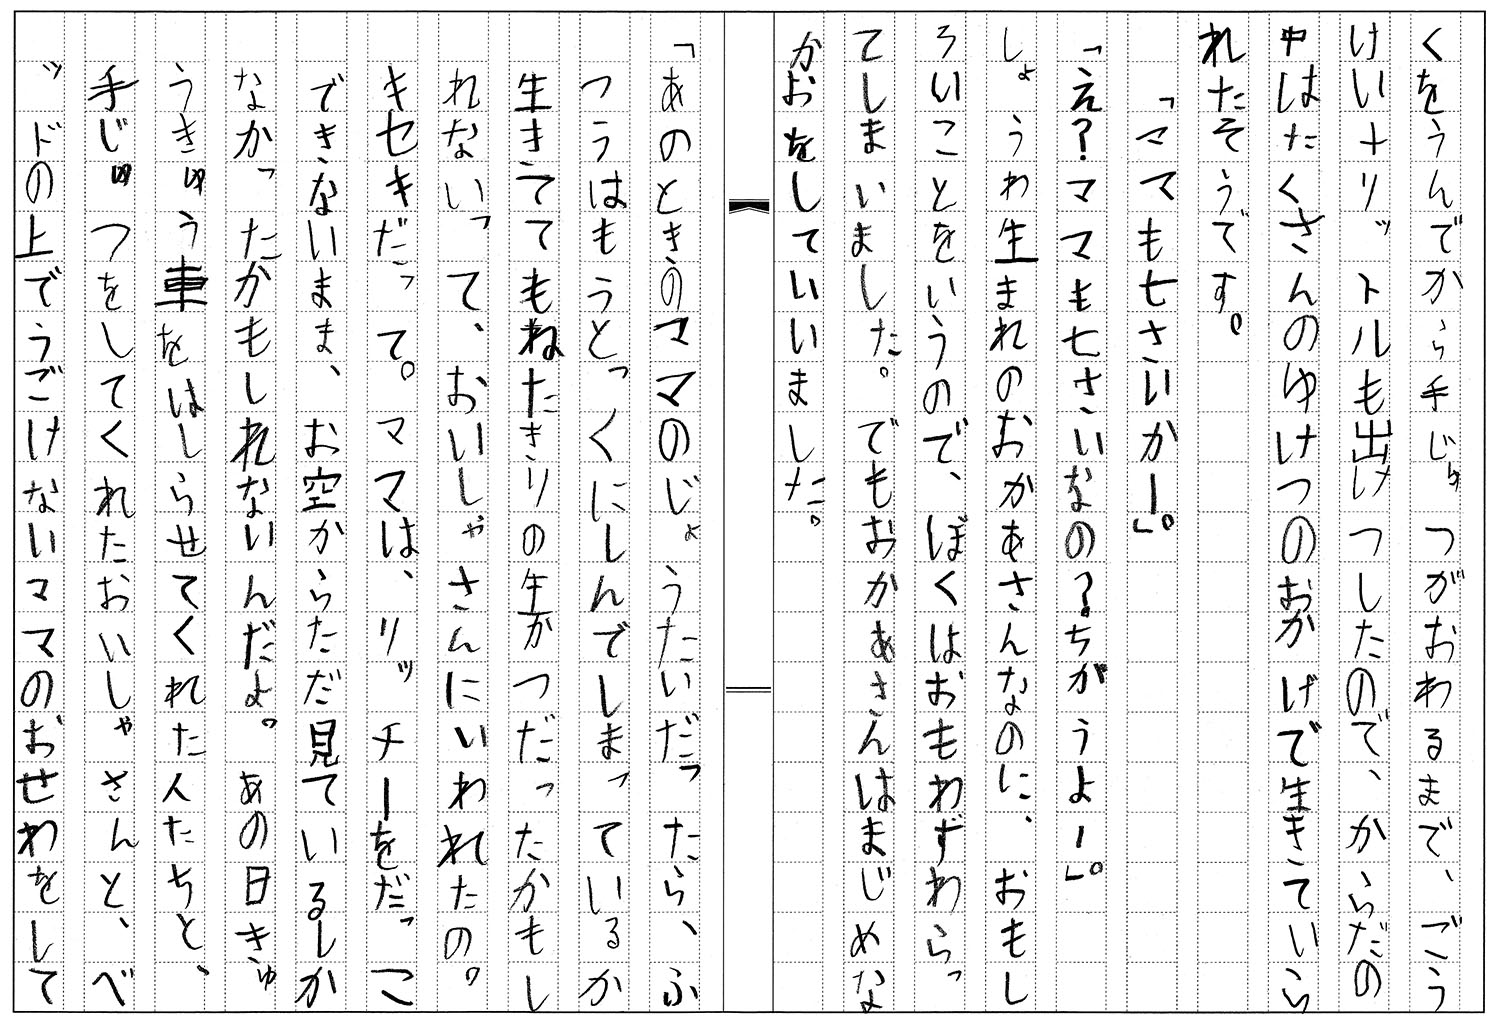 くをうんでから手じゅつがおわるまで、ごう
けい十リットルも出けつしたので、からだの
中はたくさんのゆけつのおかげで生きていら
れたそうです。
「ママも七さいかー」。
「え?ママも七さいなの?ちがうよー」。
しょうわ生まれのおかあさんなのに、おもし
ろいことをいうので、ぼくはおもわずわらっ
てしまいました。でもおかあさんはまじめな
かおをしていいました。
「あのときのママのじょうたいだったら、ふ
つうはもうとっくにしんでしまっているか
生きててもねたきりの生かつだったかもし
れないって、おいしゃさんにいわれたの。
キセキだって。ママは、リッチーをだっこ
できないまま、お空からただ見ているしか
なかったかもしれないんだよ。あの日きゅ
うきゅう車をはしらせてくれた人たちと、
手じゅつをしてくれたおいしゃさんと、べ
ッドの上でうごけないママのおせわをして